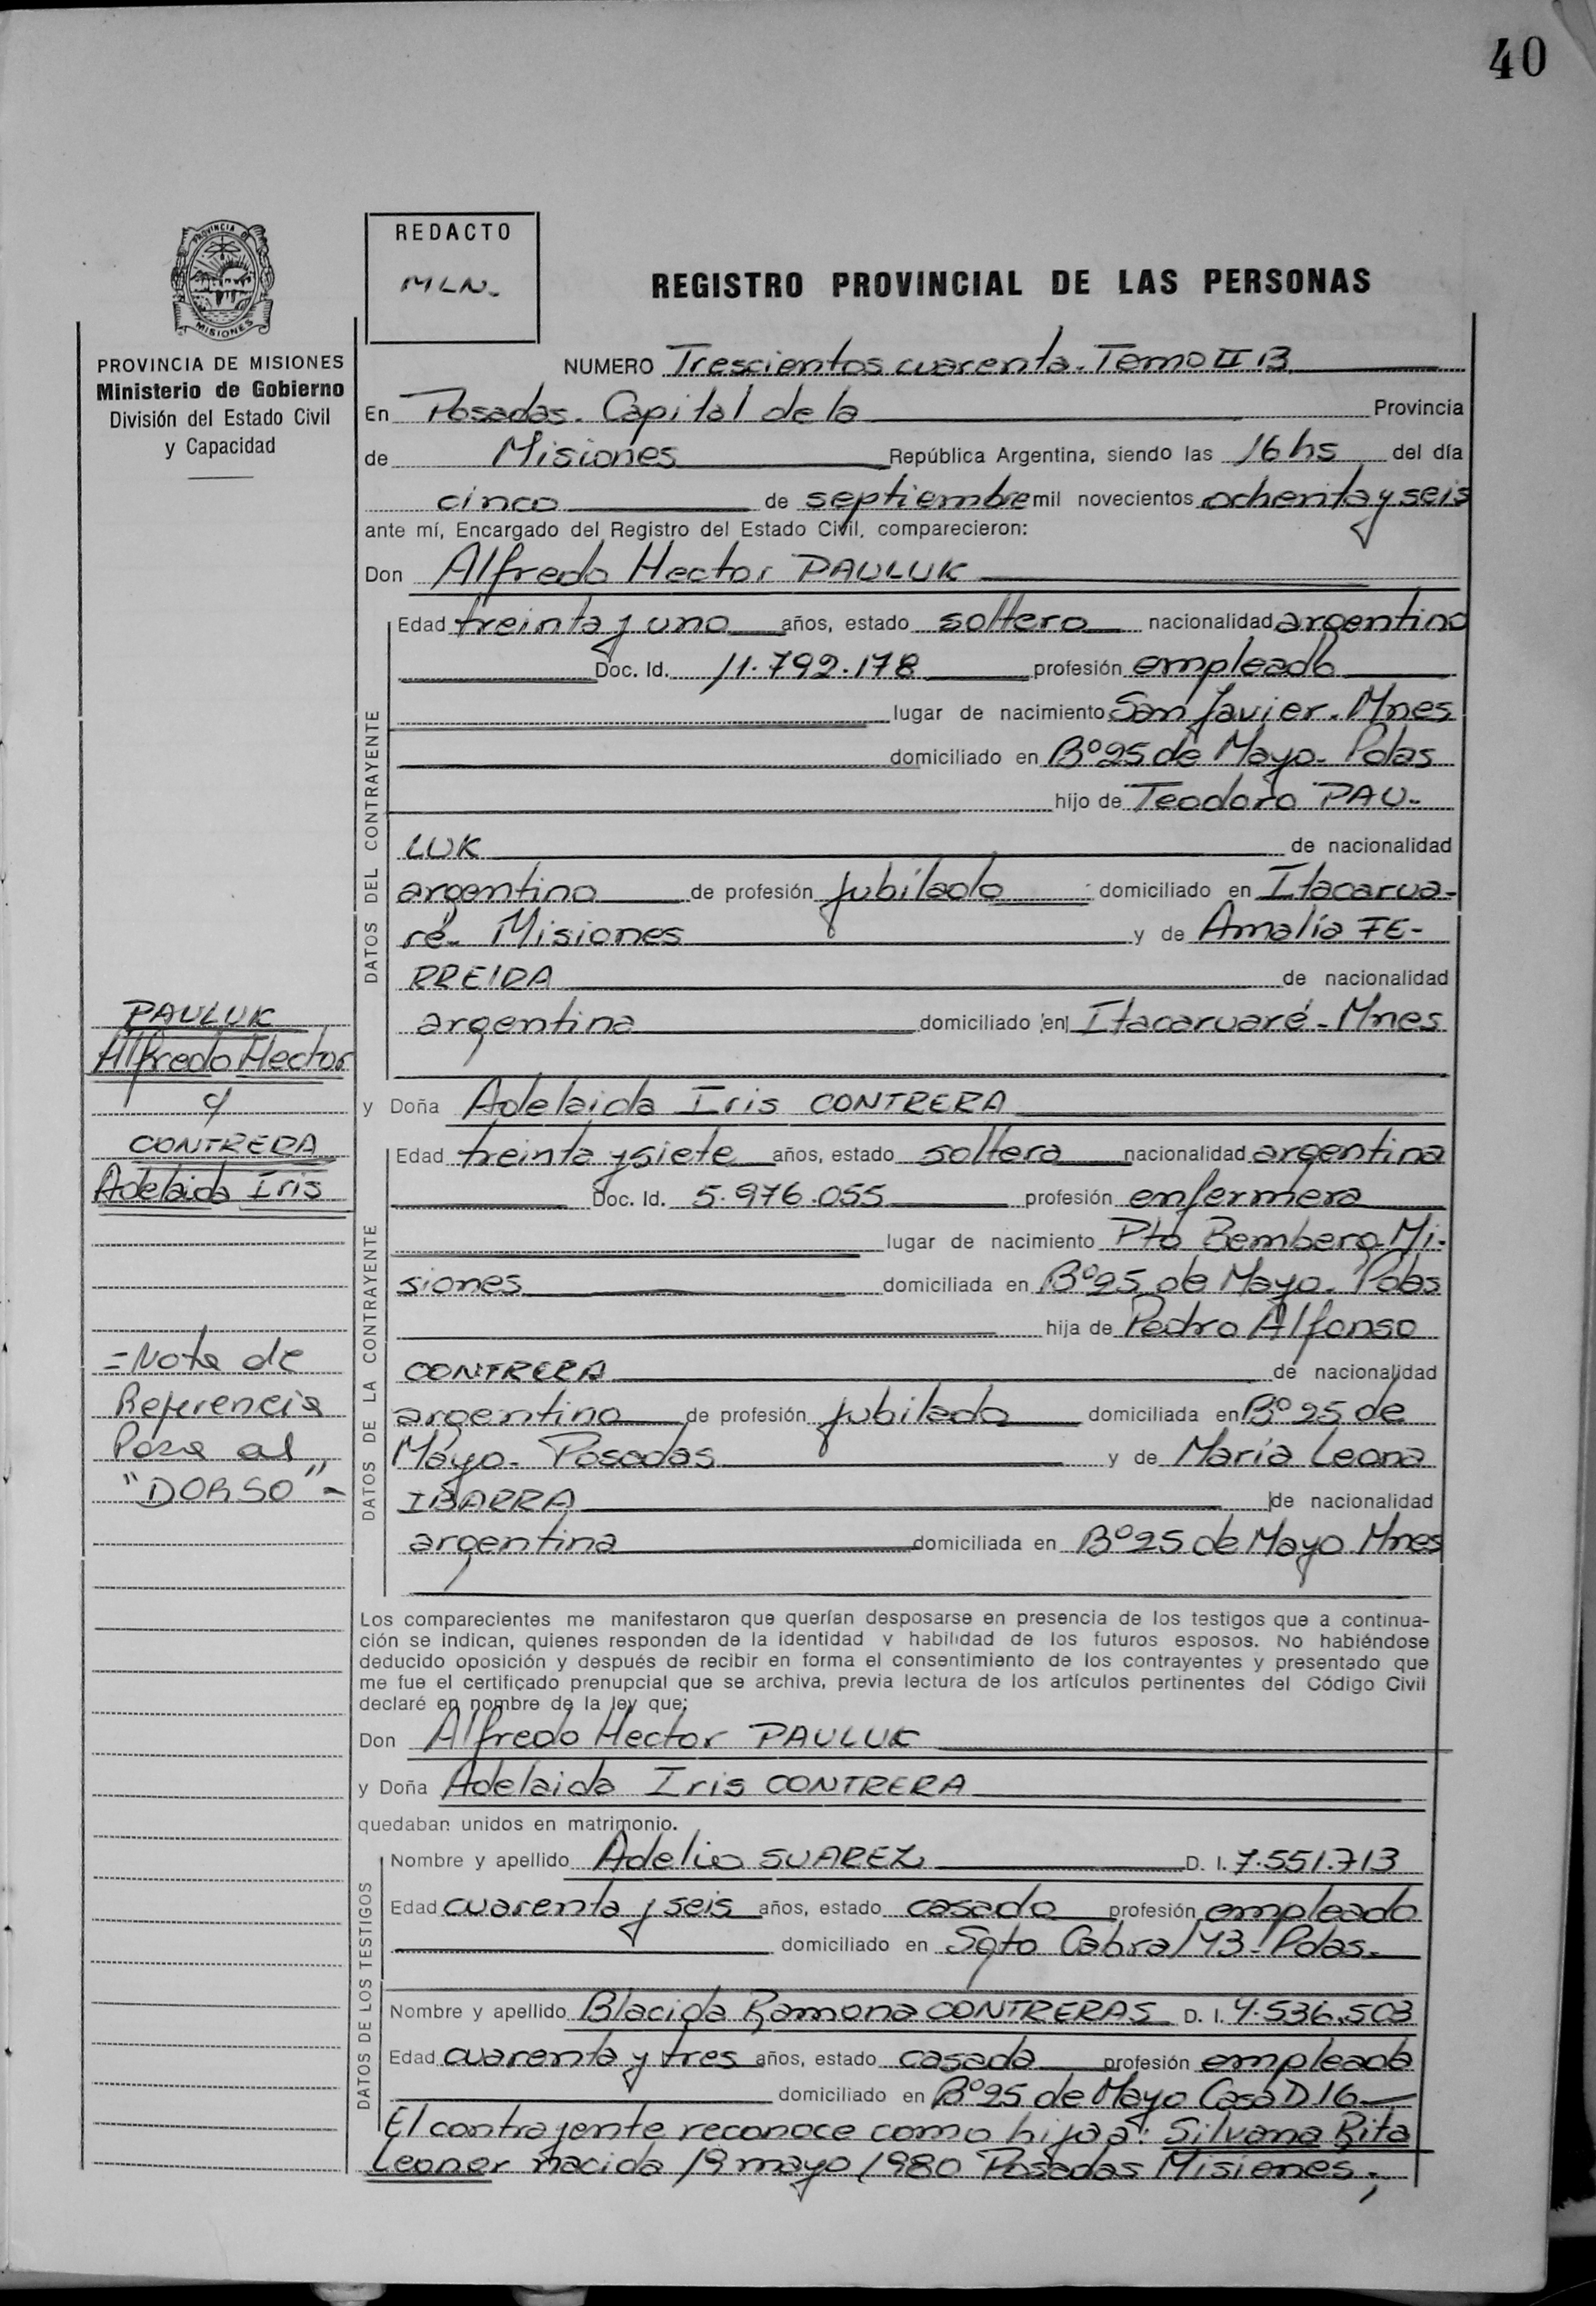 40
PROVINCIA DE
MISIONES
PROVINCIA DE MISIONES
Ministerio de Gobierno
División del Estado Civil
y Capacidad
REDACTO
MLN.
REGISTRO PROVINCIAL DE LAS PERSONAS
NUMERO Trescientos cuarenta. Tomo II B
En Posadas. Capital de la Provincia
de Misiones República Argentina, siendo las 16 hs del día
cinco de septiembre mil novecientos ochenta y seis
ante mí, Encargado del Registro del Estado Civil, comparecieron:
Don Alfredo Hector PAULUK
DATOS DEL CONTRAYENTE
Edad treinta y uno años, estado soltero nacionalidad argentino
Doc. Id. 11.792.178 profesión empleado
lugar de nacimiento San Javier. Mnes
domiciliado en Bº 25 de Mayo. Pdas
hijo de Teodoro PAU-
LUK de nacionalidad
argentino de profesión jubilado domiciliado en Itacarua-
ré. Misiones y de Amalia FE-
RREIRA de nacionalidad
argentina domiciliado en Itacaruaré - Mnes
PAULUK
Alfredo Hector
c/
CONTRERA
Adelaida Iris
y Doña Adelaida Iris CONTRERA
DATOS DE LA CONTRAYENTE
Edad treinta y siete años, estado soltera nacionalidad argentina
Doc. Id. 5.976.055 profesión enfermera
lugar de nacimiento Pto Bemberg. Mi-
siones domiciliada en Bº 25 de Mayo. Pdas
hija de Pedro Alfonso
CONTRERA de nacionalidad
argentino de profesión jubilado domiciliada en Bº 25 de
Mayo. Posadas y de María Leona
IBARRA de nacionalidad
argentina domiciliada en Bº 25 de Mayo Mnes
=Nota de
Referencia
Pasa al
"DORSO"-
Los comparecientes me manifestaron que querían desposarse en presencia de los testigos que a continua-
ción se indican, quienes responden de la identidad y habilidad de los futuros esposos. No habiéndose
deducido oposición y después de recibir en forma el consentimiento de los contrayentes y presentado que
me fue el certificado prenupcial que se archiva, previa lectura de los artículos pertinentes del Código Civil
declaré en nombre de la ley que:
Don Alfredo Hector PAULUK
y Doña Adelaida Iris CONTRERA
quedaban unidos en matrimonio.
DATOS DE LOS TESTIGOS
Nombre y apellido Adelio SUAREZ D. I. 7.551.713
Edad cuarenta y seis años, estado casado profesión empleado
domiciliado en Sgto Cabral 43. Pdas.
Nombre y apellido Blacida Ramona CONTRERAS D. I. 4.536.503
Edad cuarenta y tres años, estado casada profesión empleada
domiciliado en Bº 25 de Mayo Casa D 16
El contrayente reconoce como hija a: Silvana Rita
Leonor nacida 19 mayo 1980 Posadas Misiones;